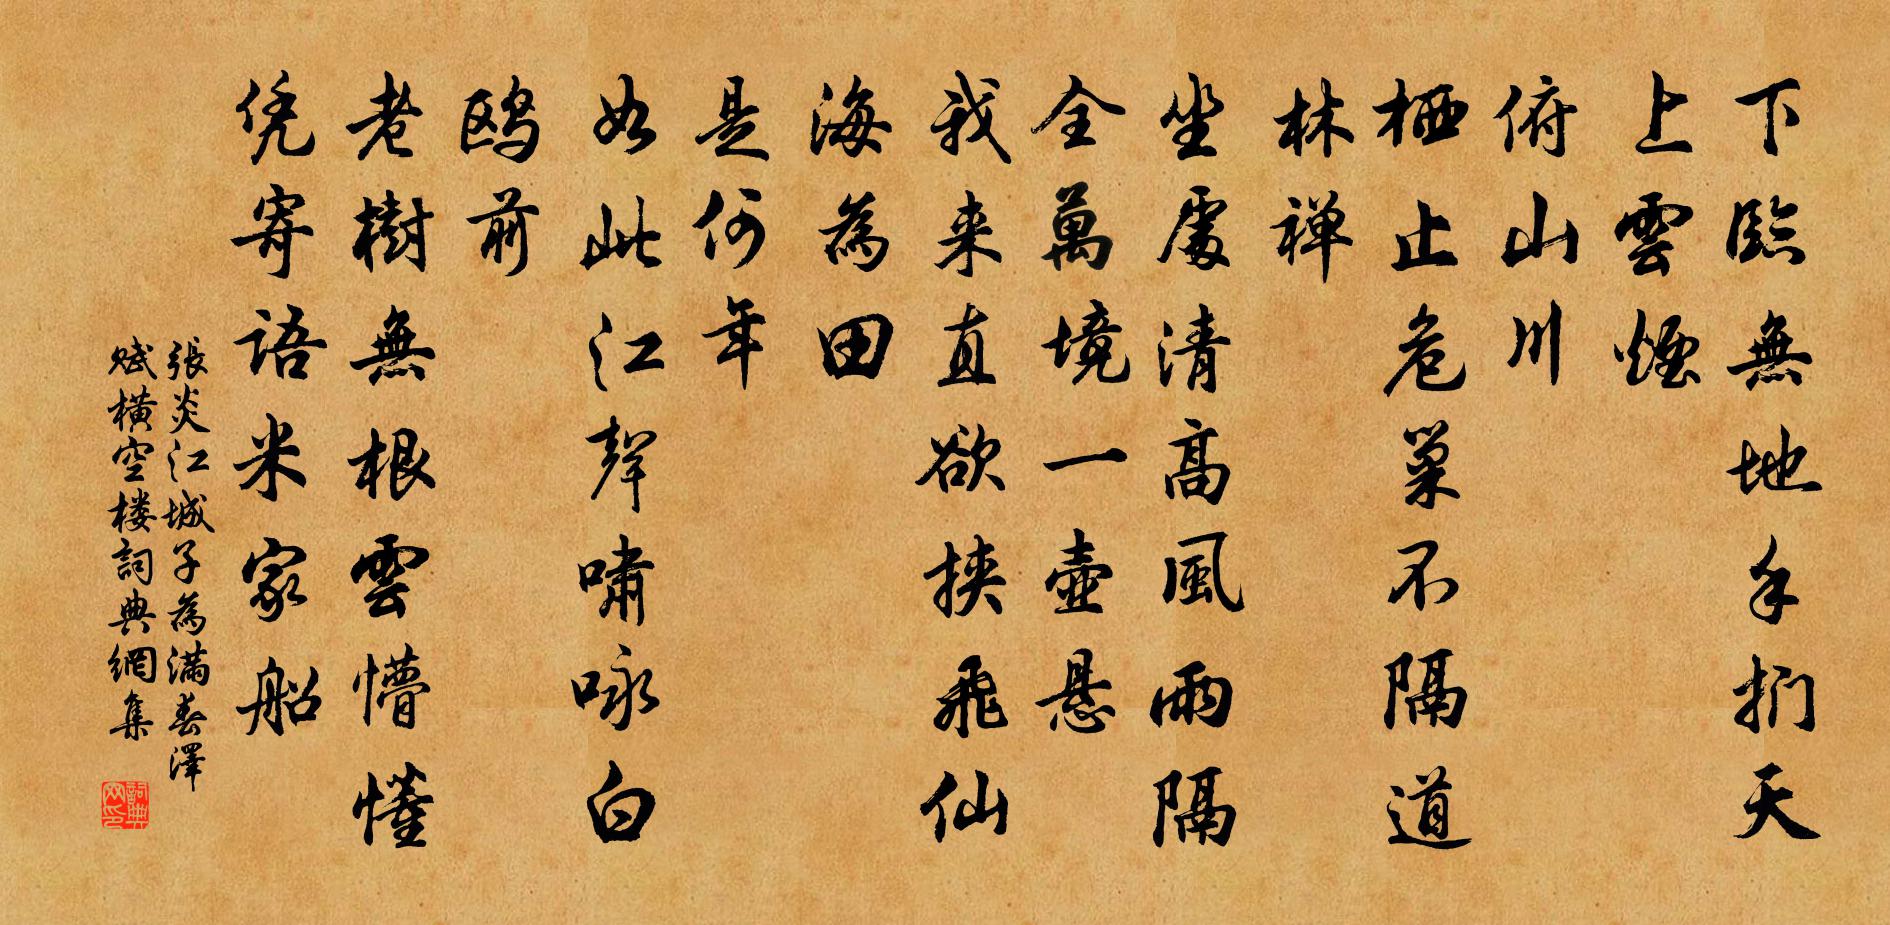 下臨無地手捫天
上雲煙
俯山川
栖止危巢不隔道
林禅
坐處清高風雨隔
全萬境一壺悬
我来直欲挟飛仙
海為田
是何年
如此江聲嘯咏白
鸥前
老樹無根雲懵懂
凭寄語米家船
張炎江城子為满春澤
赋横空楼詞典網集
詞典
网印